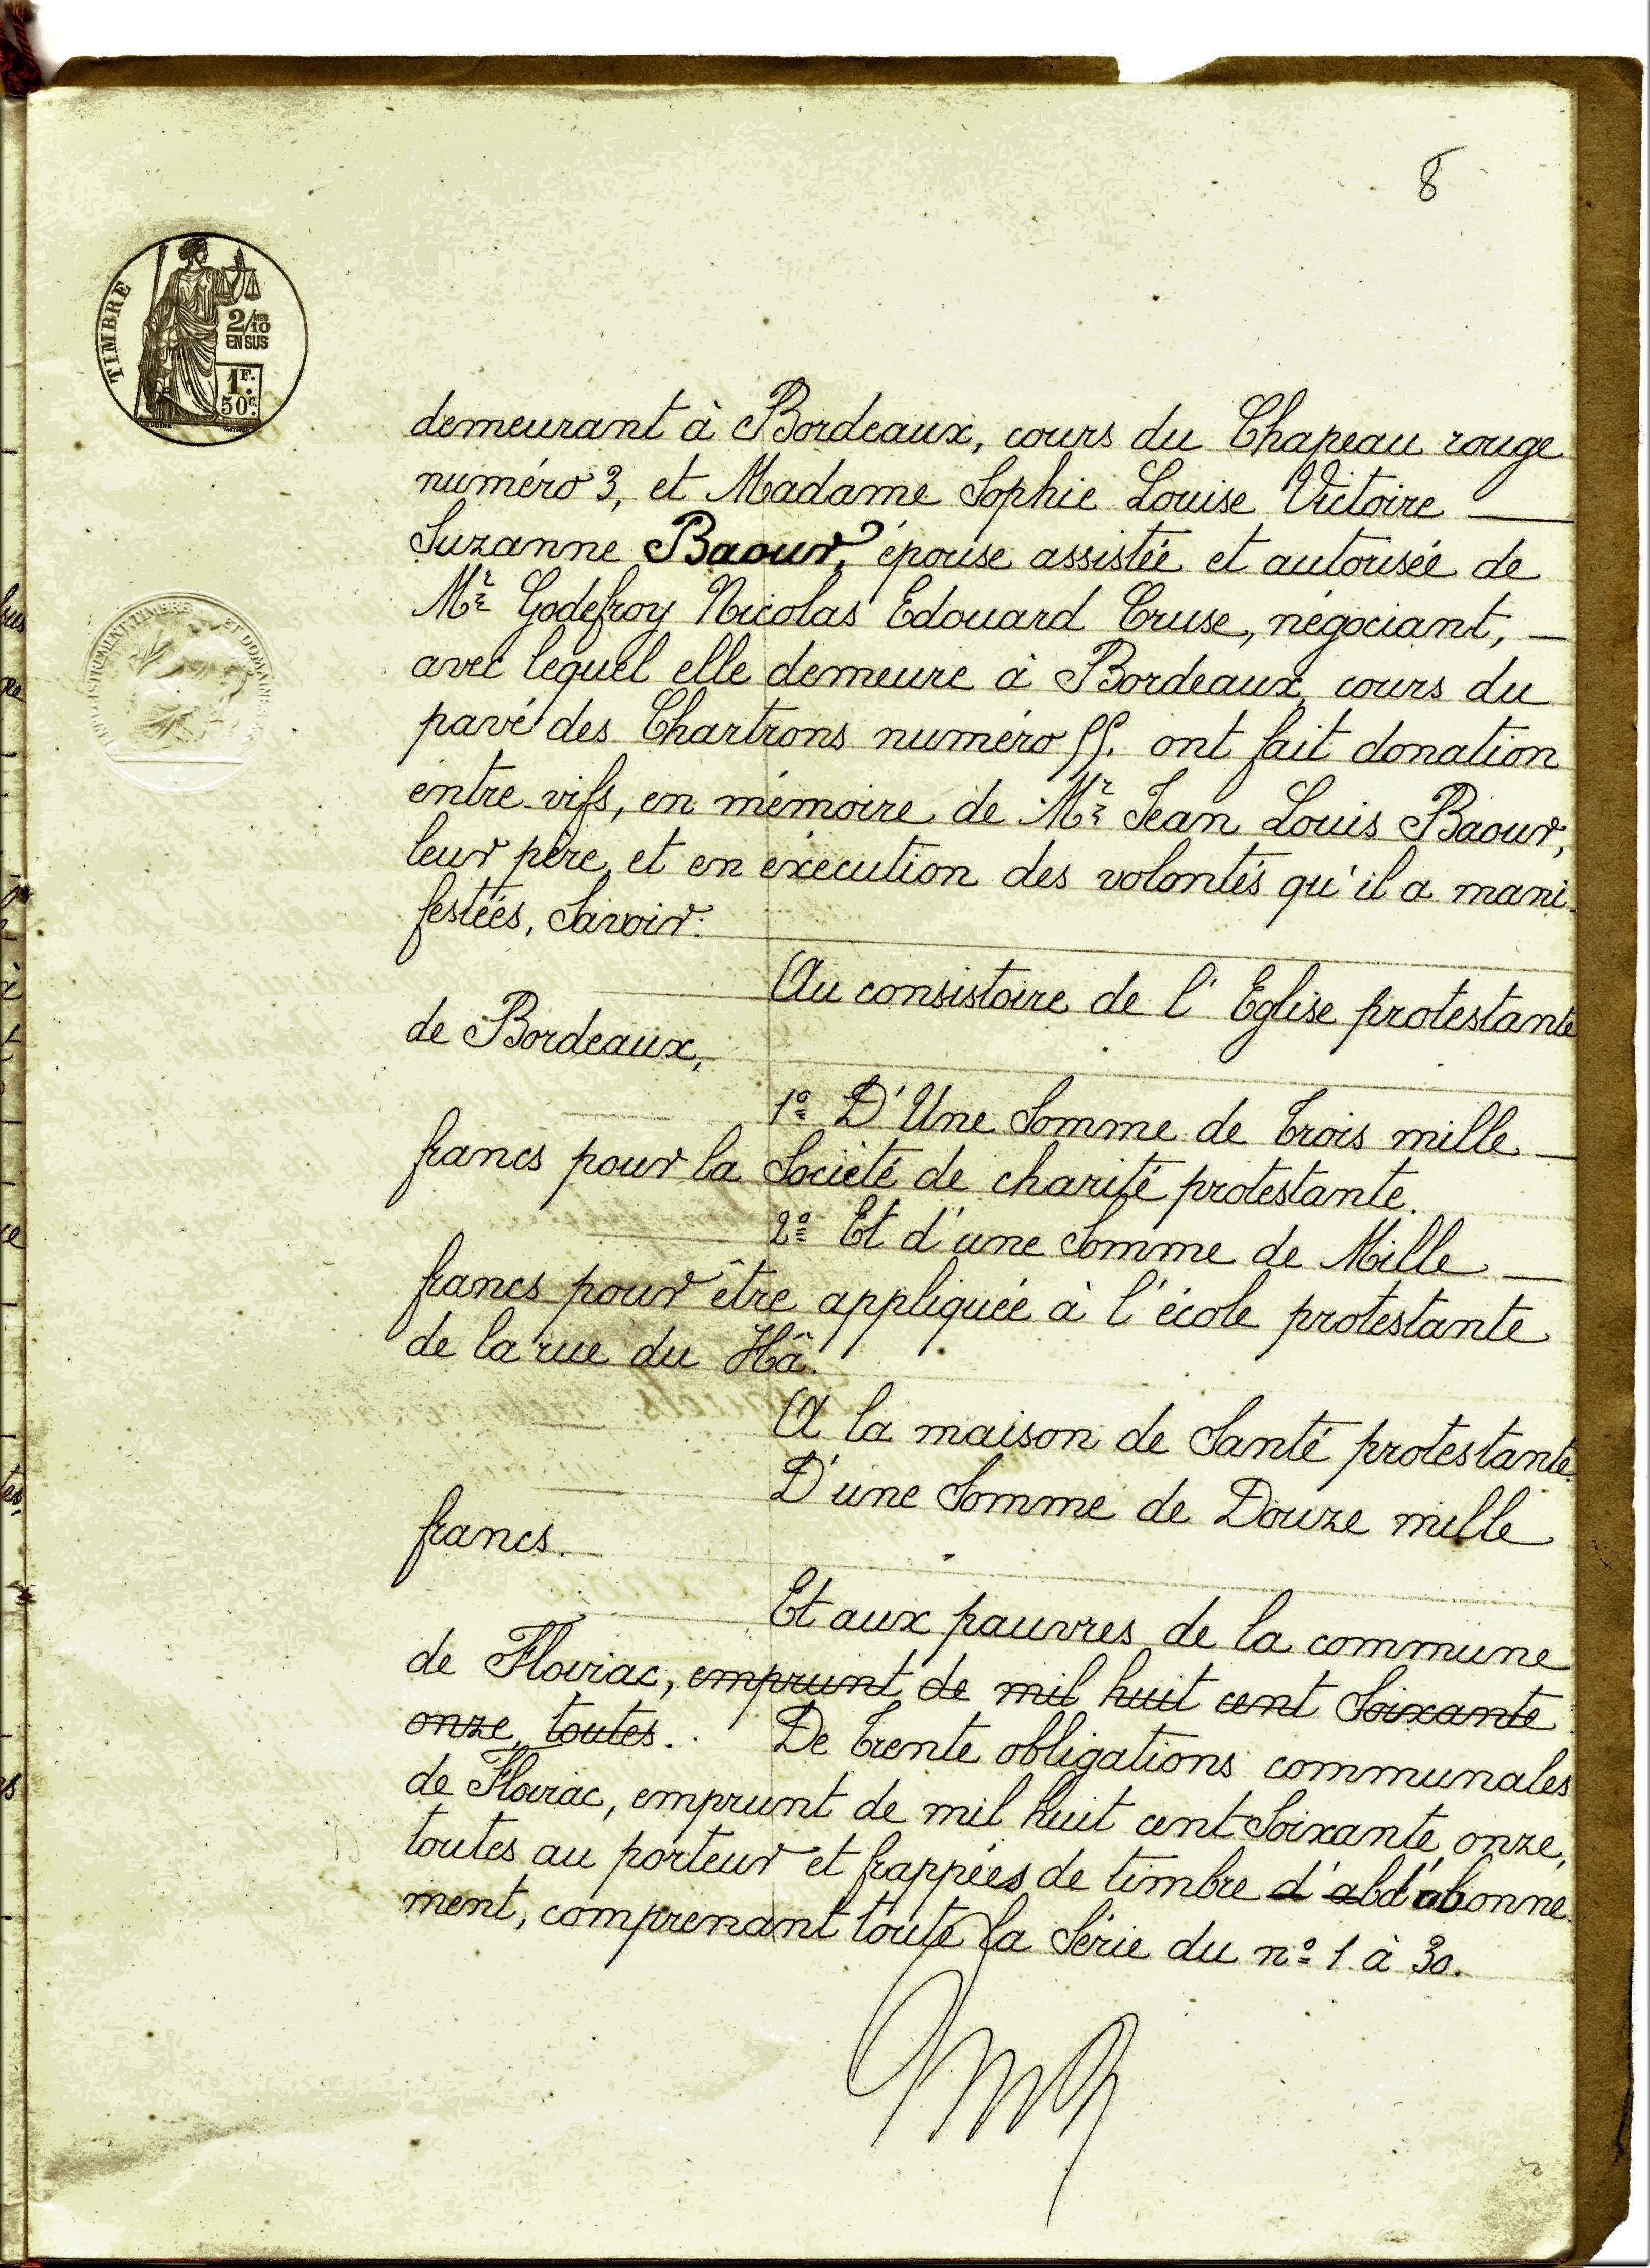 8
TIMBRE
2/10
EN SUS
1F.
50c.
demeurant à Bordeaux, cours du Chapeau rouge
numéro 3, et Madame Sophie Louise Victoire
Suzanne Baour, épouse assistée et autorisée de
Mr Godefroy Nicolas Edouard Cruse, négociant,
avec lequel elle demeure à Bordeaux, cours du
pavé des Chartrons numéro 55. ont fait donation
entre vifs, en mémoire de Mr Jean Louis Baour,
leur père, et en exécution des volontés qu'il a mani-
festées, Savoir:
Au consistoire de l'Eglise protestante
de Bordeaux,
1º D'Une Somme de trois mille
francs pour la Société de charité protestante.
2º Et d'une somme de Mille
francs pour être appliquée à l'école protestante
de la rue du Hâ.
A la maison de Santé protestante.
D'une Somme de Douze mille
francs.
Et aux pauvres de la commune
de Floirac, emprunt de mil huit cent Soixante
onze, toutes. De trente obligations communales
de Floirac, emprunt de mil huit cent Soixante onze,
toutes au porteur et frappées de timbre d'abd'abonne-
ment, comprenant toute la Série du nº 1 à 30.